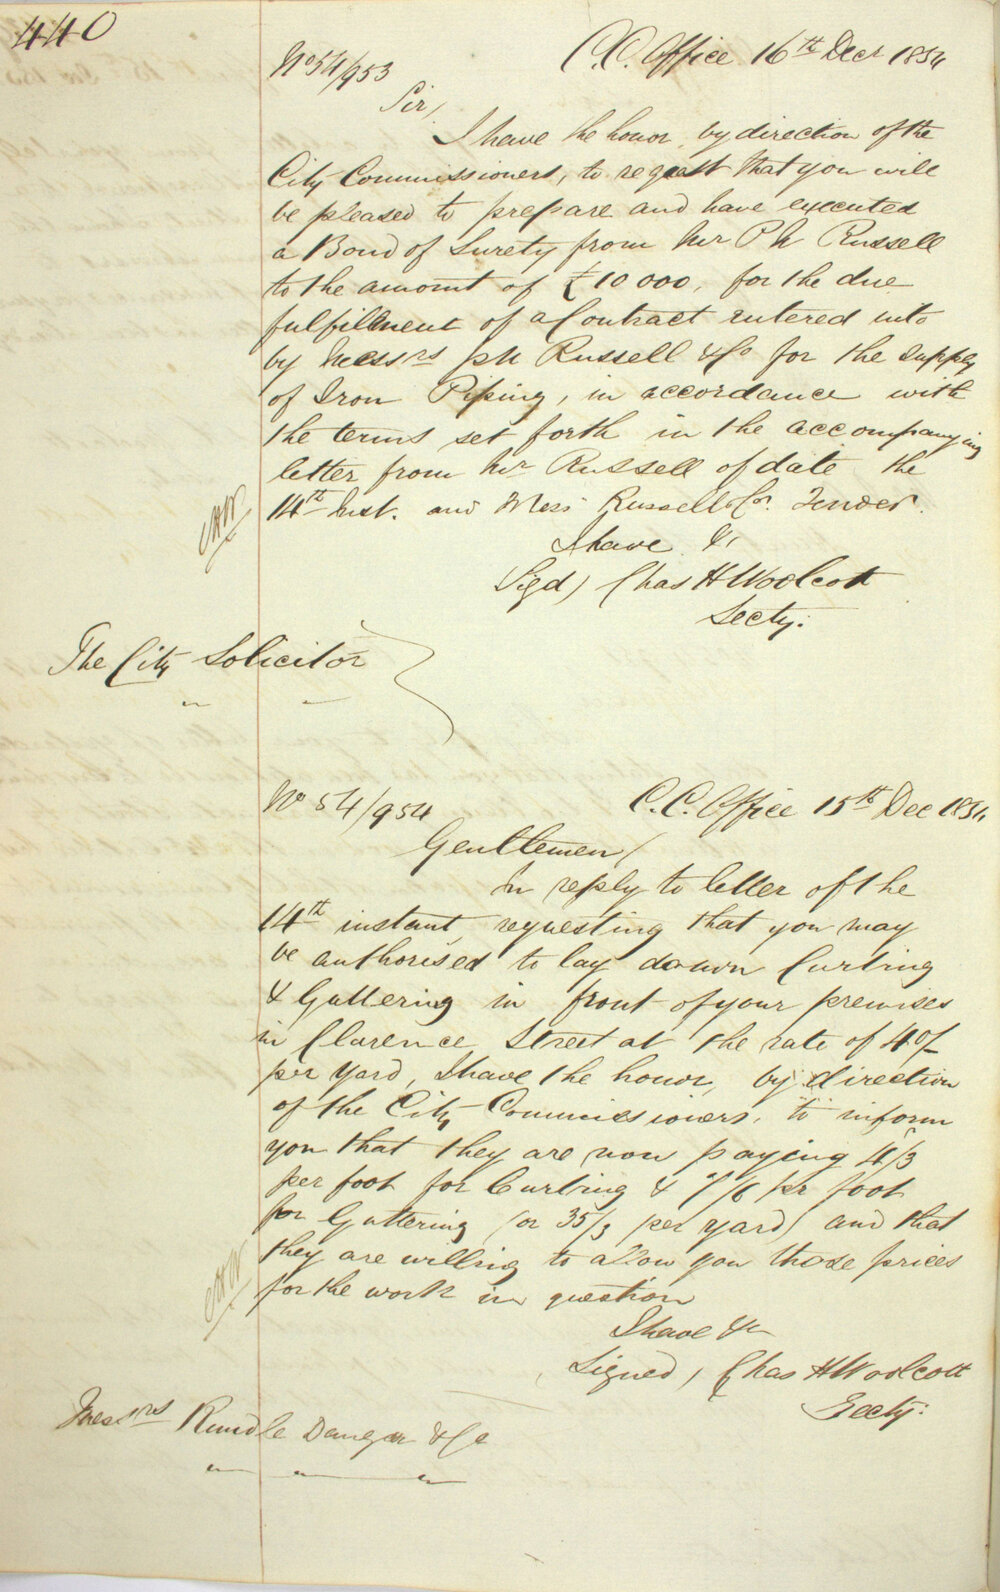 440
No 54/953
C.C. Office 16th Decr 1854
Sir,
I have the honor, by direction of the
City Commissioners, to request that you will
be pleased to prepare and have executed
a Bond of Surety from Mr P N Russell
to the amount of £10 000, for the due
fulfillment of a Contract entered into
by Messrs P N Russell & Co for the supply
of Iron Piping, in accordance with
the terms set forth in the accompanying
letter from Mr Russell of date the
14th Inst. and Mess Russell & Cos. Tender.
I have &
Sigd) Chas H Woolcott
Secty.
CHW
The City Solicitor
No 54/954
C.C. Office 15th Dec 1854
Gentlemen/
In reply to letter of the
14th instant, requesting that you may
be authorised to lay down Curbing
& Guttering in front of your premises
in Clarence Street at the rate of 40/-
per yard, I have the honor, by direction
of the City Commissioners, to inform
you that they are now paying 4/3
per foot for Curbing & 7/6 pr foot
for Guttering (or 35/3 per yard) and that
they are willing to allow you those prices
for the work in question
I have &c
Signed) Chas H Woolcott
Secty.
CHW
Messrs Rundle Dangar & Co